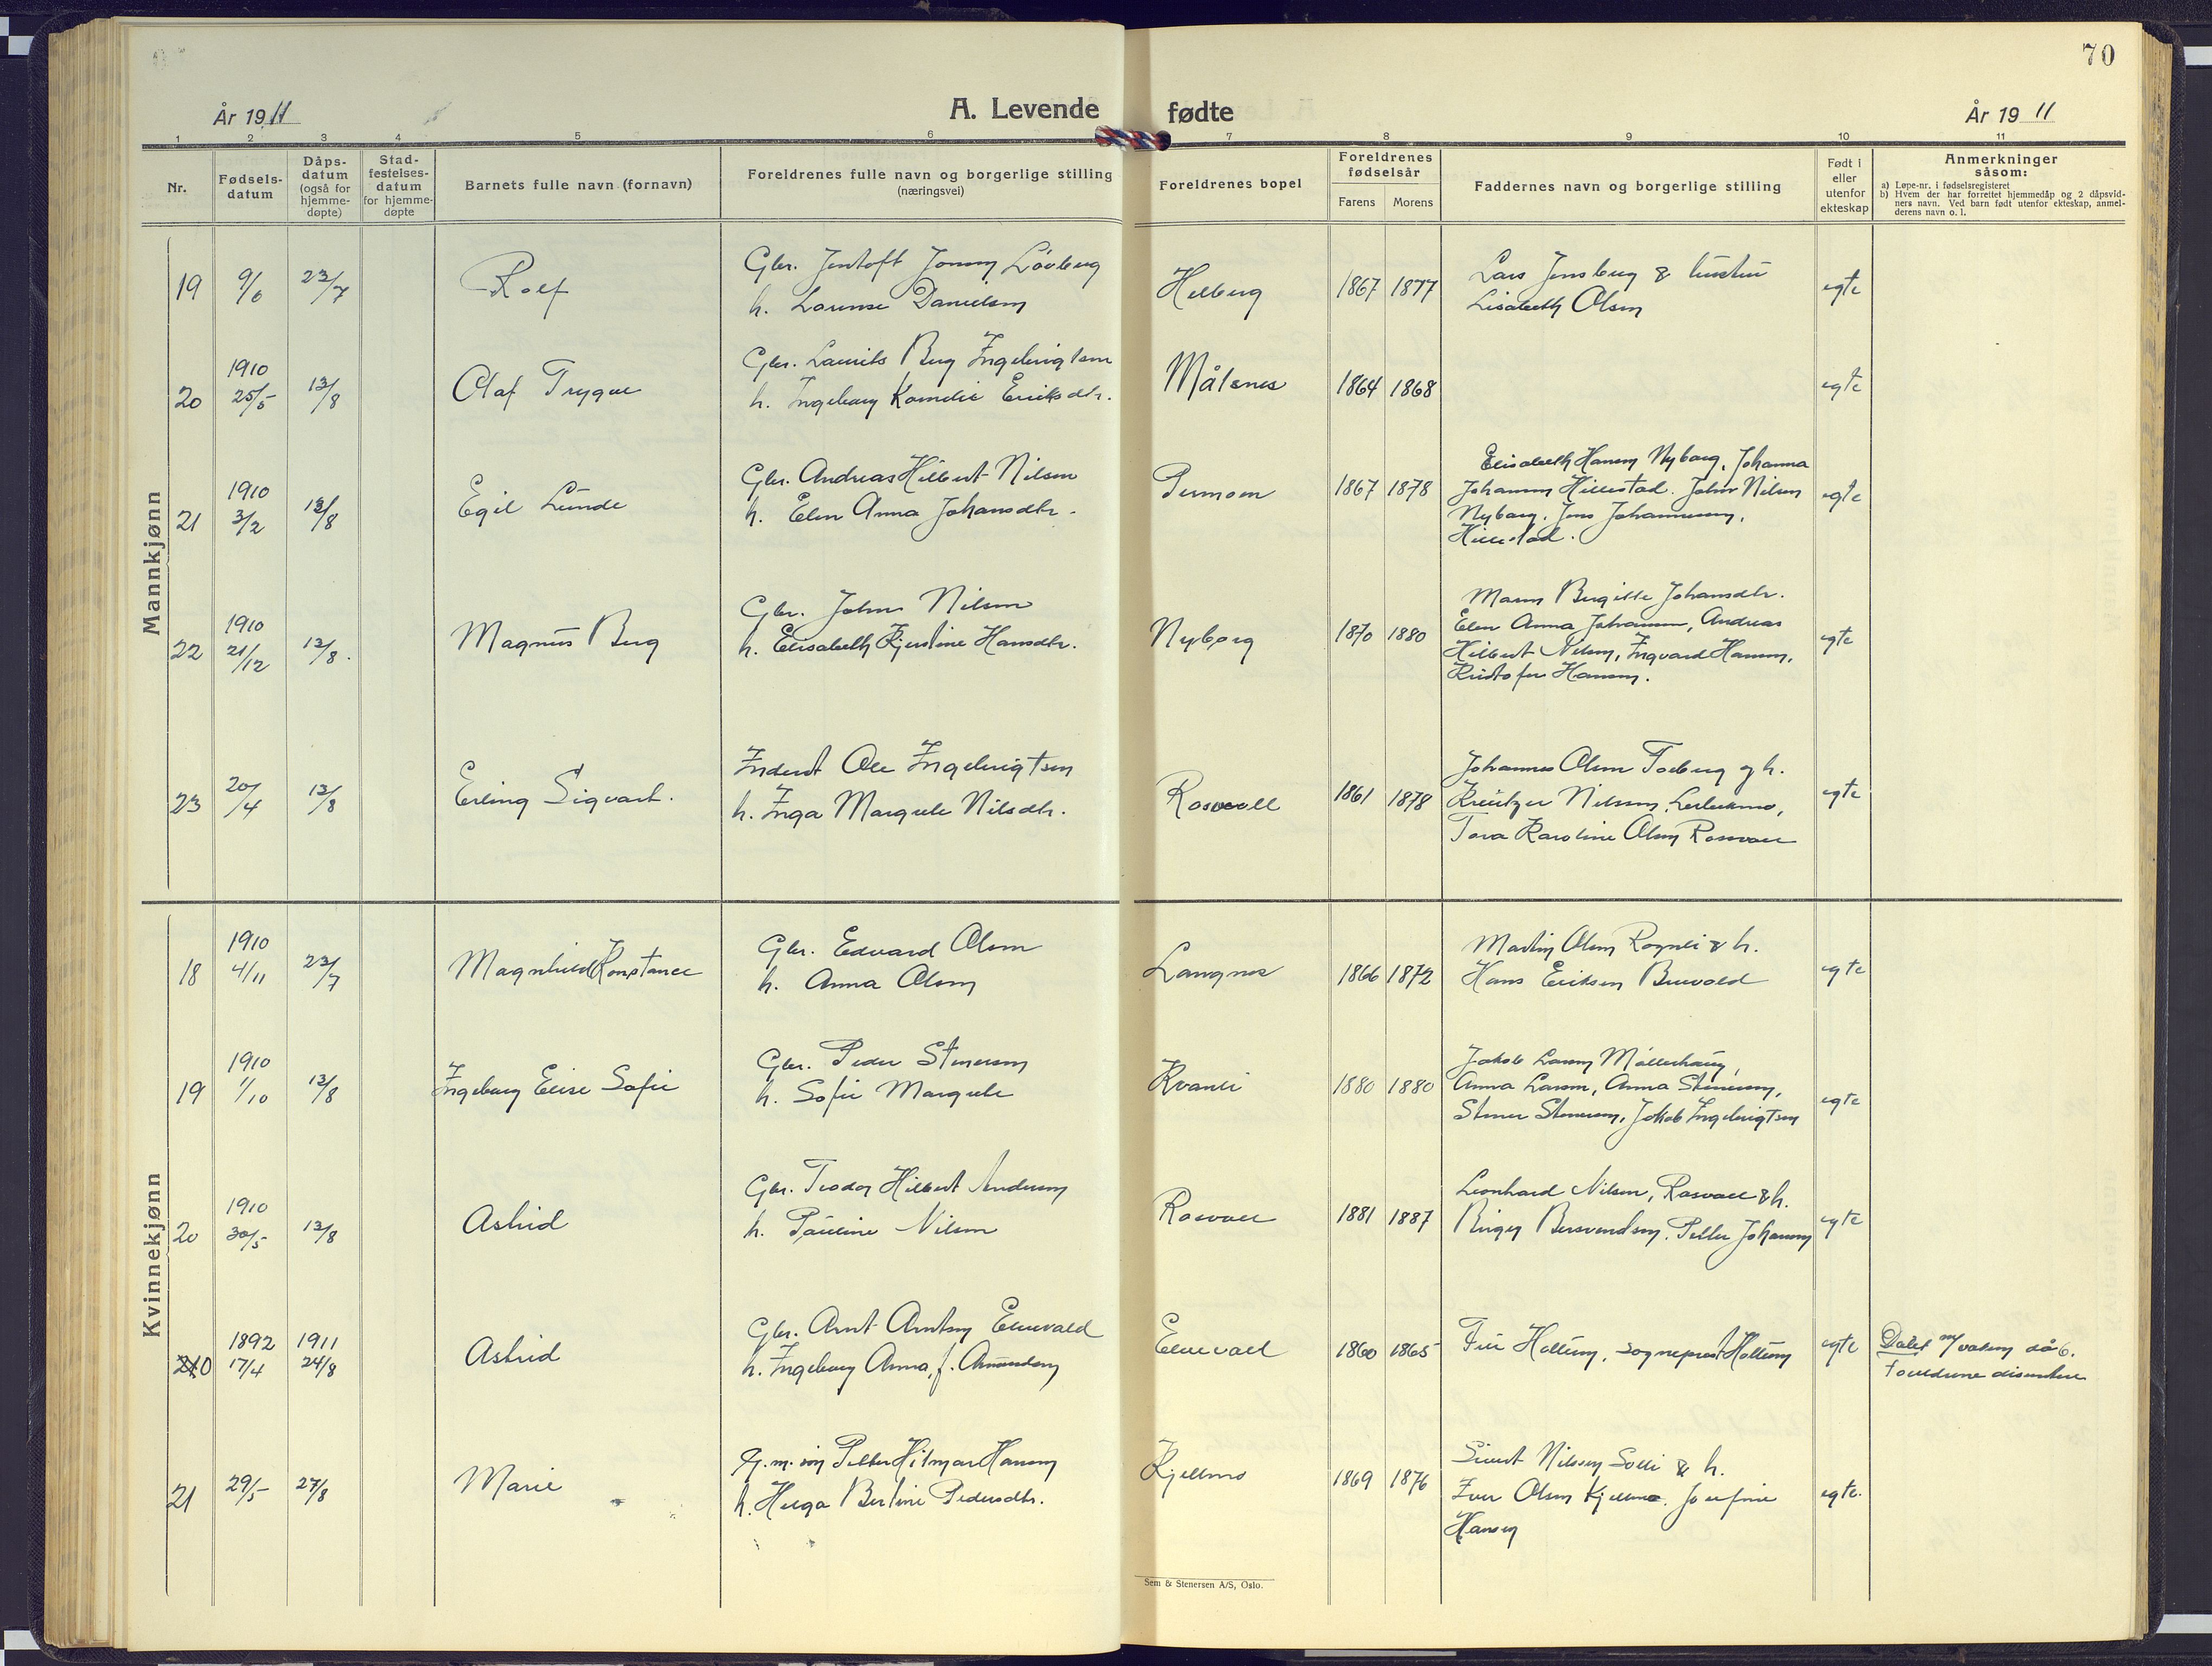 70
År 1911
A. Levende fødte
År 1911
1 2 3 4 5 6 7 8 9 10 11
Nr.
Fødsels-
datum
Dåps-
datum
(også for
hjemme-
døpte)
Stad-
festelses-
datum
for hjemme-
døpte
Barnets fulle navn (fornavn)
Foreldrenes fulle navn og borgerlige stilling
(næringsvei)
Foreldrenes bopel
Foreldrenes
fødselsår
Farens Morens
Faddernes navn og borgerlige stilling
Født i
eller
utenfor
ekteskap
Anmerkninger
såsom:
a) Løpe-nr. i fødselsregisteret
b) Hvem der har forrettet hjemmedåp og 2 dåpsvid-
ners navn. Ved barn født utenfor ekteskap, anmel-
derens navn o. l.
Mannkjønn
19 9/6 23/7 Rolf
Gbr. Jentoft Jensen Lövberg
h. Lorense Danielsen
Helberg 1867 1877
Lars Jensberg & hustru
Lisabeth Olsen
egte
20 1910 25/5 13/8 Olaf Trygve
Gbr. Laurits Berg Ingebrigtsen
h. Ingeborg Kornelie Eriksdtr.
Målsnes 1864 1868 egte
21 1910 3/2 13/8 Egil Lunde
Gbr. Andreas Hilbert Nilsen
h. Elen Anna Johansdtr.
1867 1878
Elisabeth Hansen Nyborg, Johanna
Johansen Hillestad. Johs Nilsen
Nyborg. Jens Johannesen,
Hillestad.
egte
22 1910 21/12 13/8. Magnus Berg
Gbr. Johns Nilsen
h. Elisabeth Kjerstine Hansdtr.
Nyborg 1870 1880
Maren Bergitte Johansdtr.
Elen Anna Johansen, Andreas
Hilbert Nilsen, Ingvard Hansen,
Kristofer Hansen.
egte
23 20/4 13/8 Erling Sigvart.
Inderst Ole Ingebrigtsen
h. Inga Margrete Nilsdtr.
Rosvoll 1861 1878
Johannes Olsen Toberg og h.
Kreutzer Nilssen,
Tora Karoline Olsen Rosvoll
egte
Kvinnekjønn
18 1910 4/11 23/7 Magnhild Konstance
Gbr. Edvard Olsen
h. Anna Olsen
Langnes 1866 1872
Martin Olsen Rognli & h.
Hans Eriksen Buvold
egte
19 1910 1/10 13/8 Ingeborg Elise Sofie
Gbr. Peder Stenersen
h. Sofie Margrete
Kvanli 1880 1880
Jakob Larsen Möllerhaug,
Anna Larsen, Anna Stenersen,
Stener Stenersen, Jakob Ingebrigtsen
egte
20 1910 30/5 13/8 Astrid
Gbr. Teodor Hilbert Andersen
h. Pauline Nilsen
Rosvoll 1881 1887
Leonhard Nilsen, Rosvoll & h.
Birger Bersvendsen. Petter Johansen
egte
20 1892 17/4 1911 24/8 Astrid
Gbr. Arnt Arntsen Elvevold
h. Ingeborg Anna, f. Amundsen
Elvevoll 1860 1865
Fru Holtum, sogneprest Holtum
egte
Døbt m/ voksen dåb.
Foreldrene dissentere
21 29/5 27/8 Marie
Gr. m. søn Petter Hilmar Hansen
h. Helga Bertine Pedersdtr.
Kjellmo 1869 1876
Sivert Nilssen Solli & h.
Iver Olsen Kjellmo. Josefine
Hansen
egte.
Sem & Stenersen A/S, Oslo.